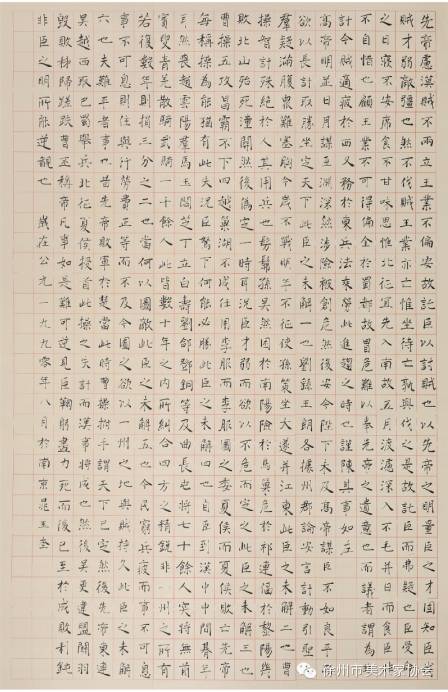 先帝慮漢賊不兩立王業不偏安故託臣以討賊也以先帝之明量臣之才固知臣伐
賊才弱敵彊也然不伐賊王業亦亡惟坐待亡孰與伐之是故託臣而弗疑也臣受命
之日寢不安席食不甘味思惟北征宜先入南故五月渡瀘深入不毛并日而食臣非
不自惜也顧王業不可得偏全於蜀都故冒危難以奉先帝之遺意也而議者謂為非
計今賊適疲於西又務於東兵法乘勞此進趨之時也謹陳其事如左
高帝明並日月謀臣淵深然涉險被創危然後安今陛下未及高帝謀臣不如良平而
欲以長計取勝坐定天下此臣之未解一也劉繇王朗各據州郡論安言計動引聖人
羣疑滿腹眾難塞胸今歲不戰明年不征使孫策坐大遂并江東此臣之未解二也曹
操智計殊絕於人其用兵也髣髴孫吳然困於南陽險於烏巢危於祁連偪於黎陽幾
敗北山殆死潼關然後偽定一時耳況臣才弱而欲以不危而定之此臣之未解三也
曹操五攻昌霸不下四越巢湖不成任用李服而李服圖之委夏侯而夏侯敗亡先帝
每稱操為能猶有此失況臣駑下何能必勝此臣之未解四也自臣到漢中中間朞年
耳然喪趙雲陽羣馬玉閻芝丁立白壽劉郃鄧銅等及曲長屯將七十餘人突將無前
賨叟青羌散騎武騎一千餘人此皆數十年之內所糾合四方之精銳非一州之所有
若復數年則損三分之二也當何以圖敵此臣之未解五也今民窮兵疲而事不可息
事不可息則住與行勞費正等而不及今圖之欲以一州之地與賊持久此臣之未解六
也夫難平者事也昔先帝敗軍於楚當此時曹操拊手謂天下已定然後先帝東連
吳越西取巴蜀舉兵北征夏侯授首此操之失計而漢事將成也然後吳更違盟關羽
毀敗秭歸蹉跌曹丕稱帝凡事如是難可逆見臣鞠躬盡力死而後已至於成敗利鈍
非臣之明所能逆覩也 歲在公元一九九零年八月於南京晁玉奎
徐州市美术家协会